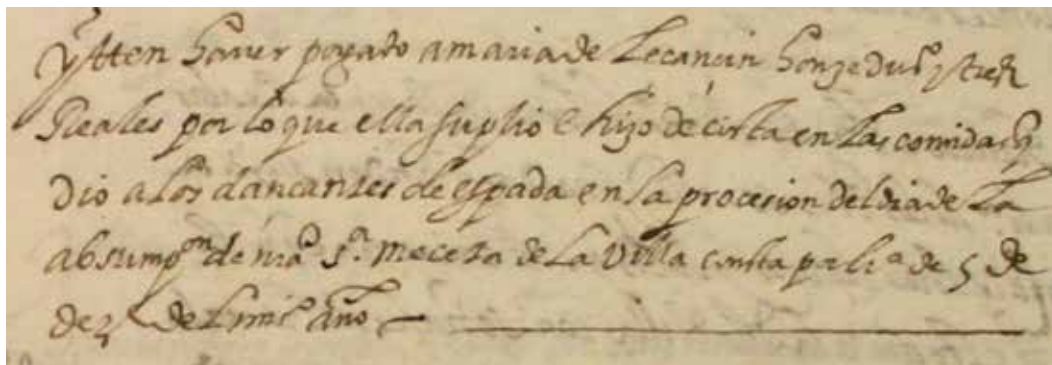 Ytten haver pagado a maria de Lecancin honze du.s y tres
Reales por lo que ella suplio e hizo de costa en las comidas q
dio a los dancantes de espada en la procesion del dia de La
absumpon de nra s.ra meceta de La Villa consta por li.a de 5 de
de del mis.o año